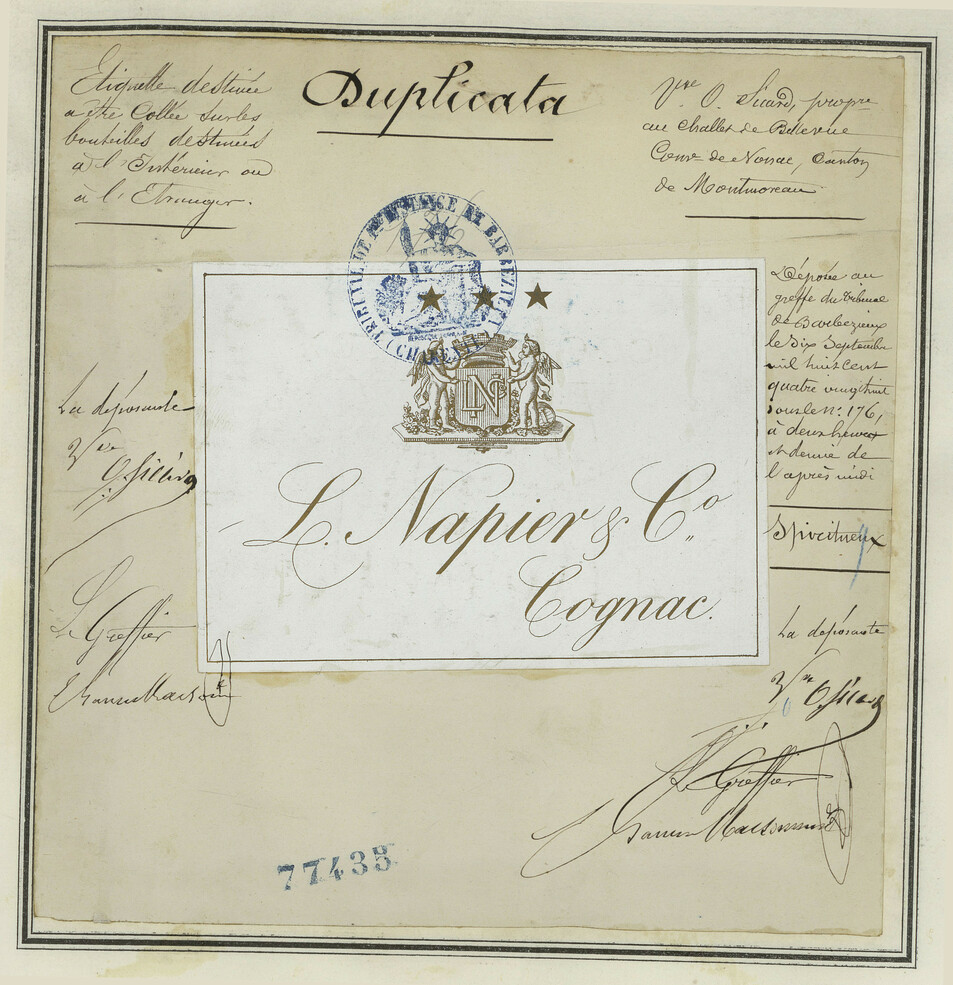 Duplicata
Etiquette destinée
a être Collée sur les
bouteilles destinées
à l'Intérieur ou
à l'Etranger.
Vve O. Sicard, propre
au challet de Bellevue
Comne de Nonac, Canton
de Montmoreau
TRIBUNAL DE 1ère INSTANCE DE BARBEZIEUX
(CHARENTE)
LNCo
L. Napier & Co
Cognac.
Déposée au
greffe du tribunal
de Barbezieux
le dix Septembre
mil huit cent
quatre vingt huit
sous le no. 176,
à deux heures
et demie de
l'après midi
Spiritueux
La déposante
Vve O. Sicard
Le Greffier
La déposante
Vve O. Sicard
Le Greffier
77438